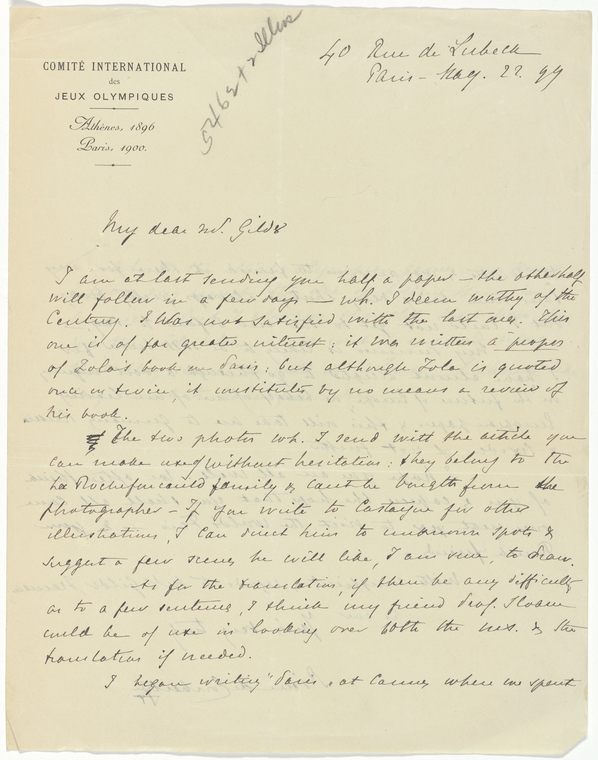 COMITÉ INTERNATIONAL
des
JEUX OLYMPIQUES
Athènes, 1896
Paris, 1900.
40 Rue de Lubeck
Paris - May. 22. 99
My dear Mr. Gilder
I am at last sending you half a paper — the other half
will follow in a few days — wh. I deem worthy of the
Century. I was not satisfied with the last ones. This
one is of far greater interest; it was written a propos
of Zola's book on Paris; but although Zola is quoted
once or twice, it constitutes by no means a review of
his book.
The two photos wh. I send with the article you
can make use of without hesitation: they belong to the
La Rochefoucauld family & can't be bought from the
photographer - If you write to Castaigne for other
illustrations, I can direct him to unknown spots &
suggest a few scenes he will like, I am sure, to draw.
As for the translation, if there be any difficulty
as to a few sentences, I think my friend Prof. Sloane
could be of use in looking over both the ms. & the
translation if needed.
I began writing "Paris" at Cannes where we spent